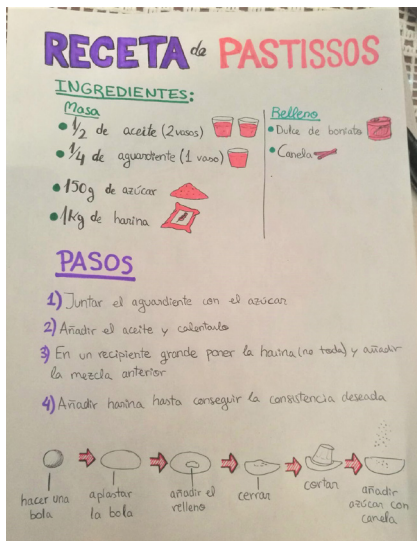 RECETA de PASTISSOS
INGREDIENTES:
Masa
1/2 de aceite (2 vasos)
1/4 de aguardiente (1 vaso)
150g de azúcar
1Kg de harina
Relleno
Dulce de boniato
Canela
PASOS
1) Juntar el aguardiente con el azúcar
2) Añadir el aceite y calentarlo
3) En un recipiente grande poner la harina (no toda) y añadir
la mezcla anterior
4) Añadir harina hasta conseguir la consistencia deseada
hacer una
bola
aplastar
la bola
añadir el
relleno
cerrar
cortar
añadir
azúcar con
canela